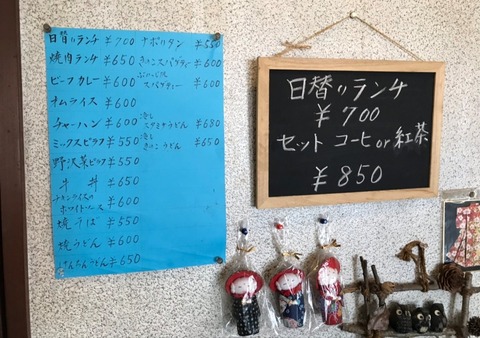 日替りランチ ¥700
焼肉ランチ ¥650
ビーフカレー ¥600
オムライス ¥600
チャーハン ¥600
ミックスピラフ ¥550
野沢菜ピラフ ¥550
牛丼 ¥650
ホワイトソース ¥600
焼そば ¥550
焼うどん ¥600
¥650
ナポリタン ¥550
きのこスパゲティー ¥600
スパゲティー ¥600
冷し
スタミナうどん ¥680
冷し
きのこうどん ¥650
日替りランチ
¥700
セット コーヒ or 紅茶
¥850